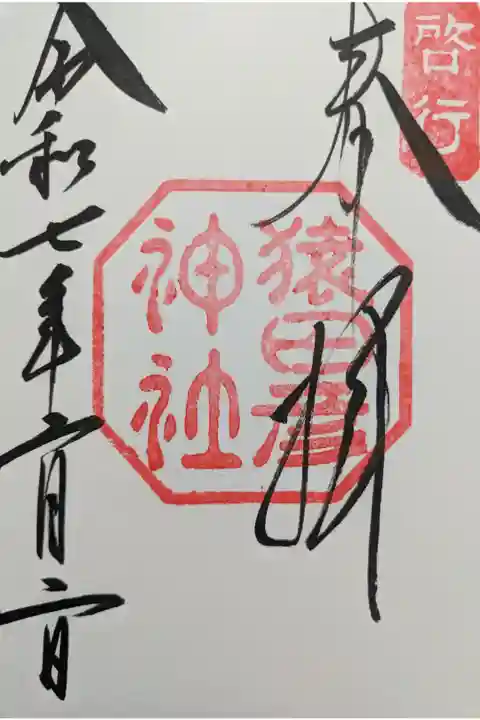 啓行
奉拝
猿田彦
神社
令和七年二月二日